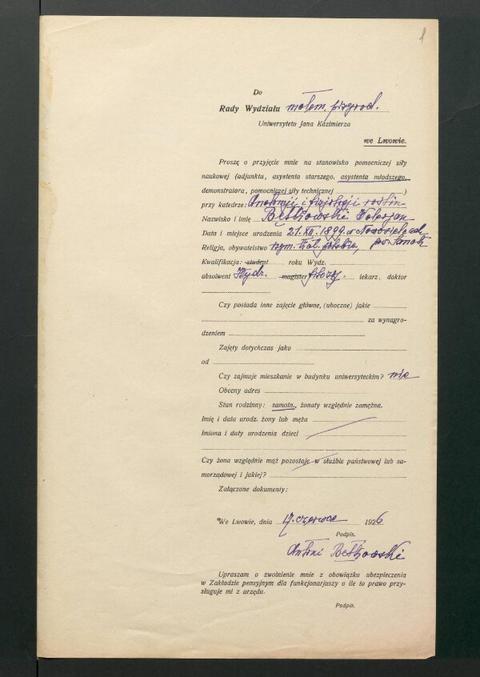 1
Do
Rady Wydziału matem. przyrod.
Uniwersytetu Jana Kazimierza
we Lwowie.
Proszę o przyjęcie mnie na stanowisko pomocniczej siły
naukowej (adjunkta, asystenta starszego, asystenta młodszego,
demonstratora, pomocniczej siły technicznej)
przy katedrze: Anatomji i fizjologji roślin
Nazwisko i imię
Data i miejsce urodzenia 21.XII.1899. w
Religja, obywatelstwo rzym. kat. polskie, pow. Sanok
Kwalifikacja: student roku Wydz.
absolwent Wydz. magister filozof. lekarz, doktor
Czy posiada inne zajęcie główne, (uboczne) jakie
za wynagro-
dzeniem
Zajęty dotychczas jako
od
Czy zajmuje mieszkanie w budynku uniwersyteckim? nie
Obecny adres
Stan rodzinny: samotn., żonaty względnie zamężna.
Imię i data urodz. żony lub męża
Imiona i daty urodzenia dzieci
Czy żona względnie mąż pozostaje w służbie państwowej lub sa-
morządowej i jakiej?
Załączone dokumenty:
We Lwowie, dnia 17. czerwca 1926
Podpis.
Antoni
Upraszam o zwolnienie mnie z obowiązku ubezpieczenia
w Zakładzie pensyjnym dla funkcjonarjuszy o ile to prawo przy-
sługuje mi z urzędu.
Podpis.